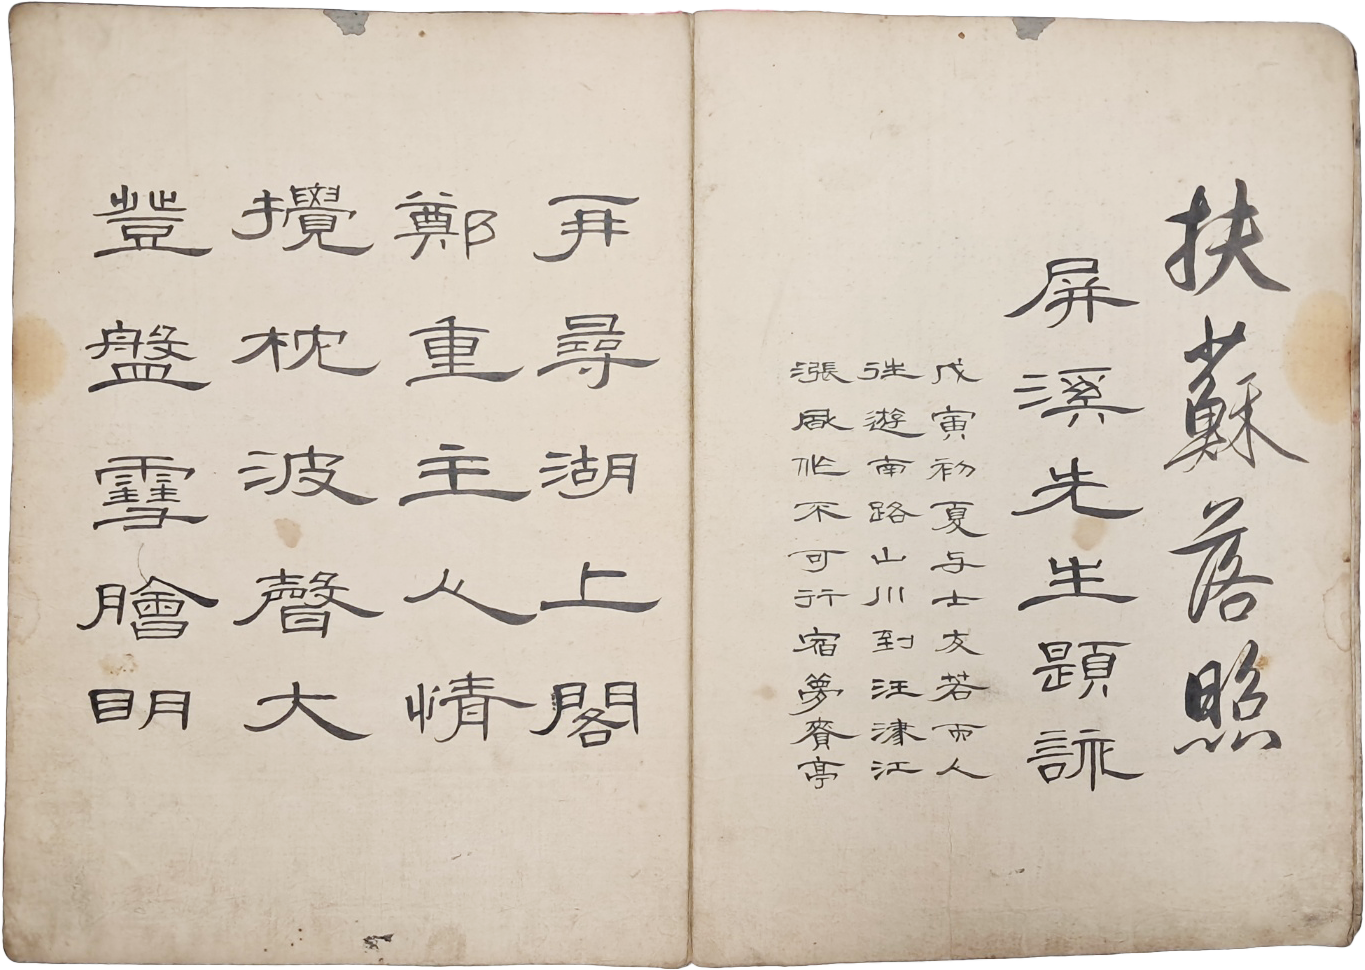 扶蘇落照
屏溪先生題詠
戊寅初夏与士友若而人
往遊南路山川到汪津江
漲風作不可行宿夢賚亭
再尋湖上閣
鄭重主人情
攪枕波聲大
登盤雪膾明